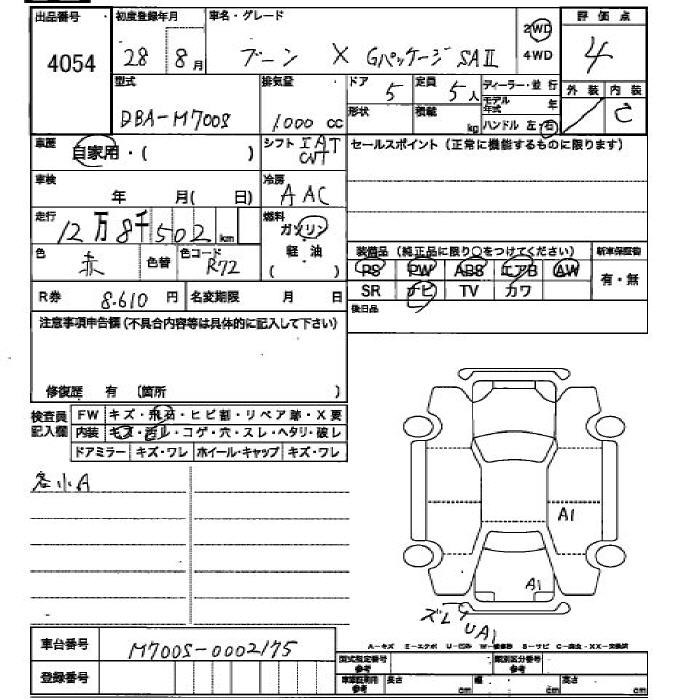 出品番号 初度登録年月 車名・グレード 評価点
4054 28 8月 ブーン X Gパッケージ SAⅡ 2WD 4WD 4
型式 排気量 ドア 定員 ディーラー・並行 外装 内装
DBA-M700S 1000 cc 5 5人 モデル年式 年 C
形状 積載 kg ハンドル 左・右
車歴 自家用・( ) シフト IAT CVT セールスポイント(正常に機能するものに限ります)
車検 年 月( 日) 冷房 AAC
走行 12万8千502km 燃料 ガソリン
軽油
( )
色 赤 色替 色コード R72
装備品(純正品に限り○をつけてください) 新車保証物
PS PW ABS エアB AW 有・無
SR ナビ TV カワ
R券 8.610円 名変期限 月 日 後日品
注意事項申告欄(不具合内容等は具体的に記入して下さい)
修復歴 有 (箇所 )
検査員記入欄 FW キズ・飛石・ヒビ割・リペア跡・X要
内装 キズ・汚れ・コゲ・穴・スレ・ヘタリ・破レ
ドアミラー キズ・ワレ ホイール・キャップ キズ・ワレ
各小A
A1
A1
ズレ
UA1
車台番号 M700S-0002175
登録番号
A-キズ E-エクボ U-凹み W-補修跡 S-サビ C-腐食・XX-交換済
型式指定番号 参考 類別区分番号 参考
車庫証明用 参考 長さ cm 幅 cm 高さ cm